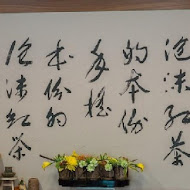 泡沫紅茶
的本份
多樣
本份的
泡沫紅茶